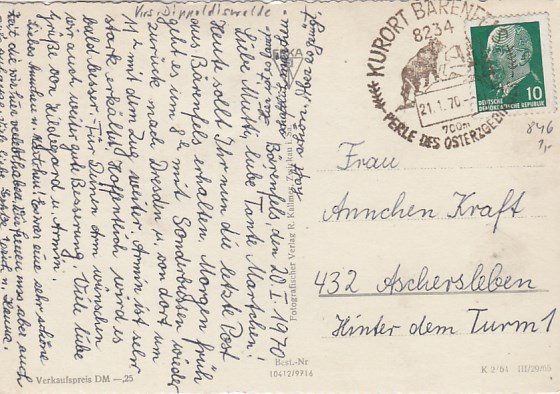 Krs. Dippoldiswalde
Bärenfels, den 20. I. 1970
Liebe Mutti, liebe Tante Martchen!
Heute sollt Ihr nun die letzte Post
aus Bärenfels erhalten. Morgen früh
geht es um 8¹⁵ mit Sonderbussen wieder
zurück nach Dresden u. von dort um
11¹² mit dem Zug weiter. Armin ist sehr
stark erkältet. Hoffentlich wird es
bald besser. Für Deinen Arm wünschen
wir auch weiter gute Besserung. Viele liebe
Grüße von Hildegard u. Armin.
Liebe Annchen u. Martchen! Immer eine sehr schöne
Zeit die wir hier
KURORT BÄRENFELS
8234
21.1.70
700m
PERLE DES OSTERZGEBIRGES
DEUTSCHE DEMOKRATISCHE REPUBLIK
10
846
Frau
Annchen Kraft
432 Aschersleben
Hinter dem Turm 1
Fotografischer Verlag R. Kallmer, Zwickau i. Sa.
Best.-Nr
10412/9916
Verkaufspreis DM —,25
K 2/64 III/29/65